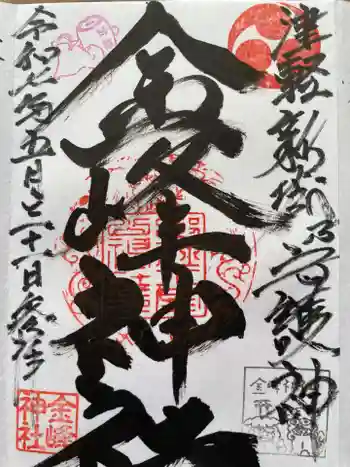 津軽新城乃守護神
金峰神社
令和七年五月二十一日参拝
金峰
神社